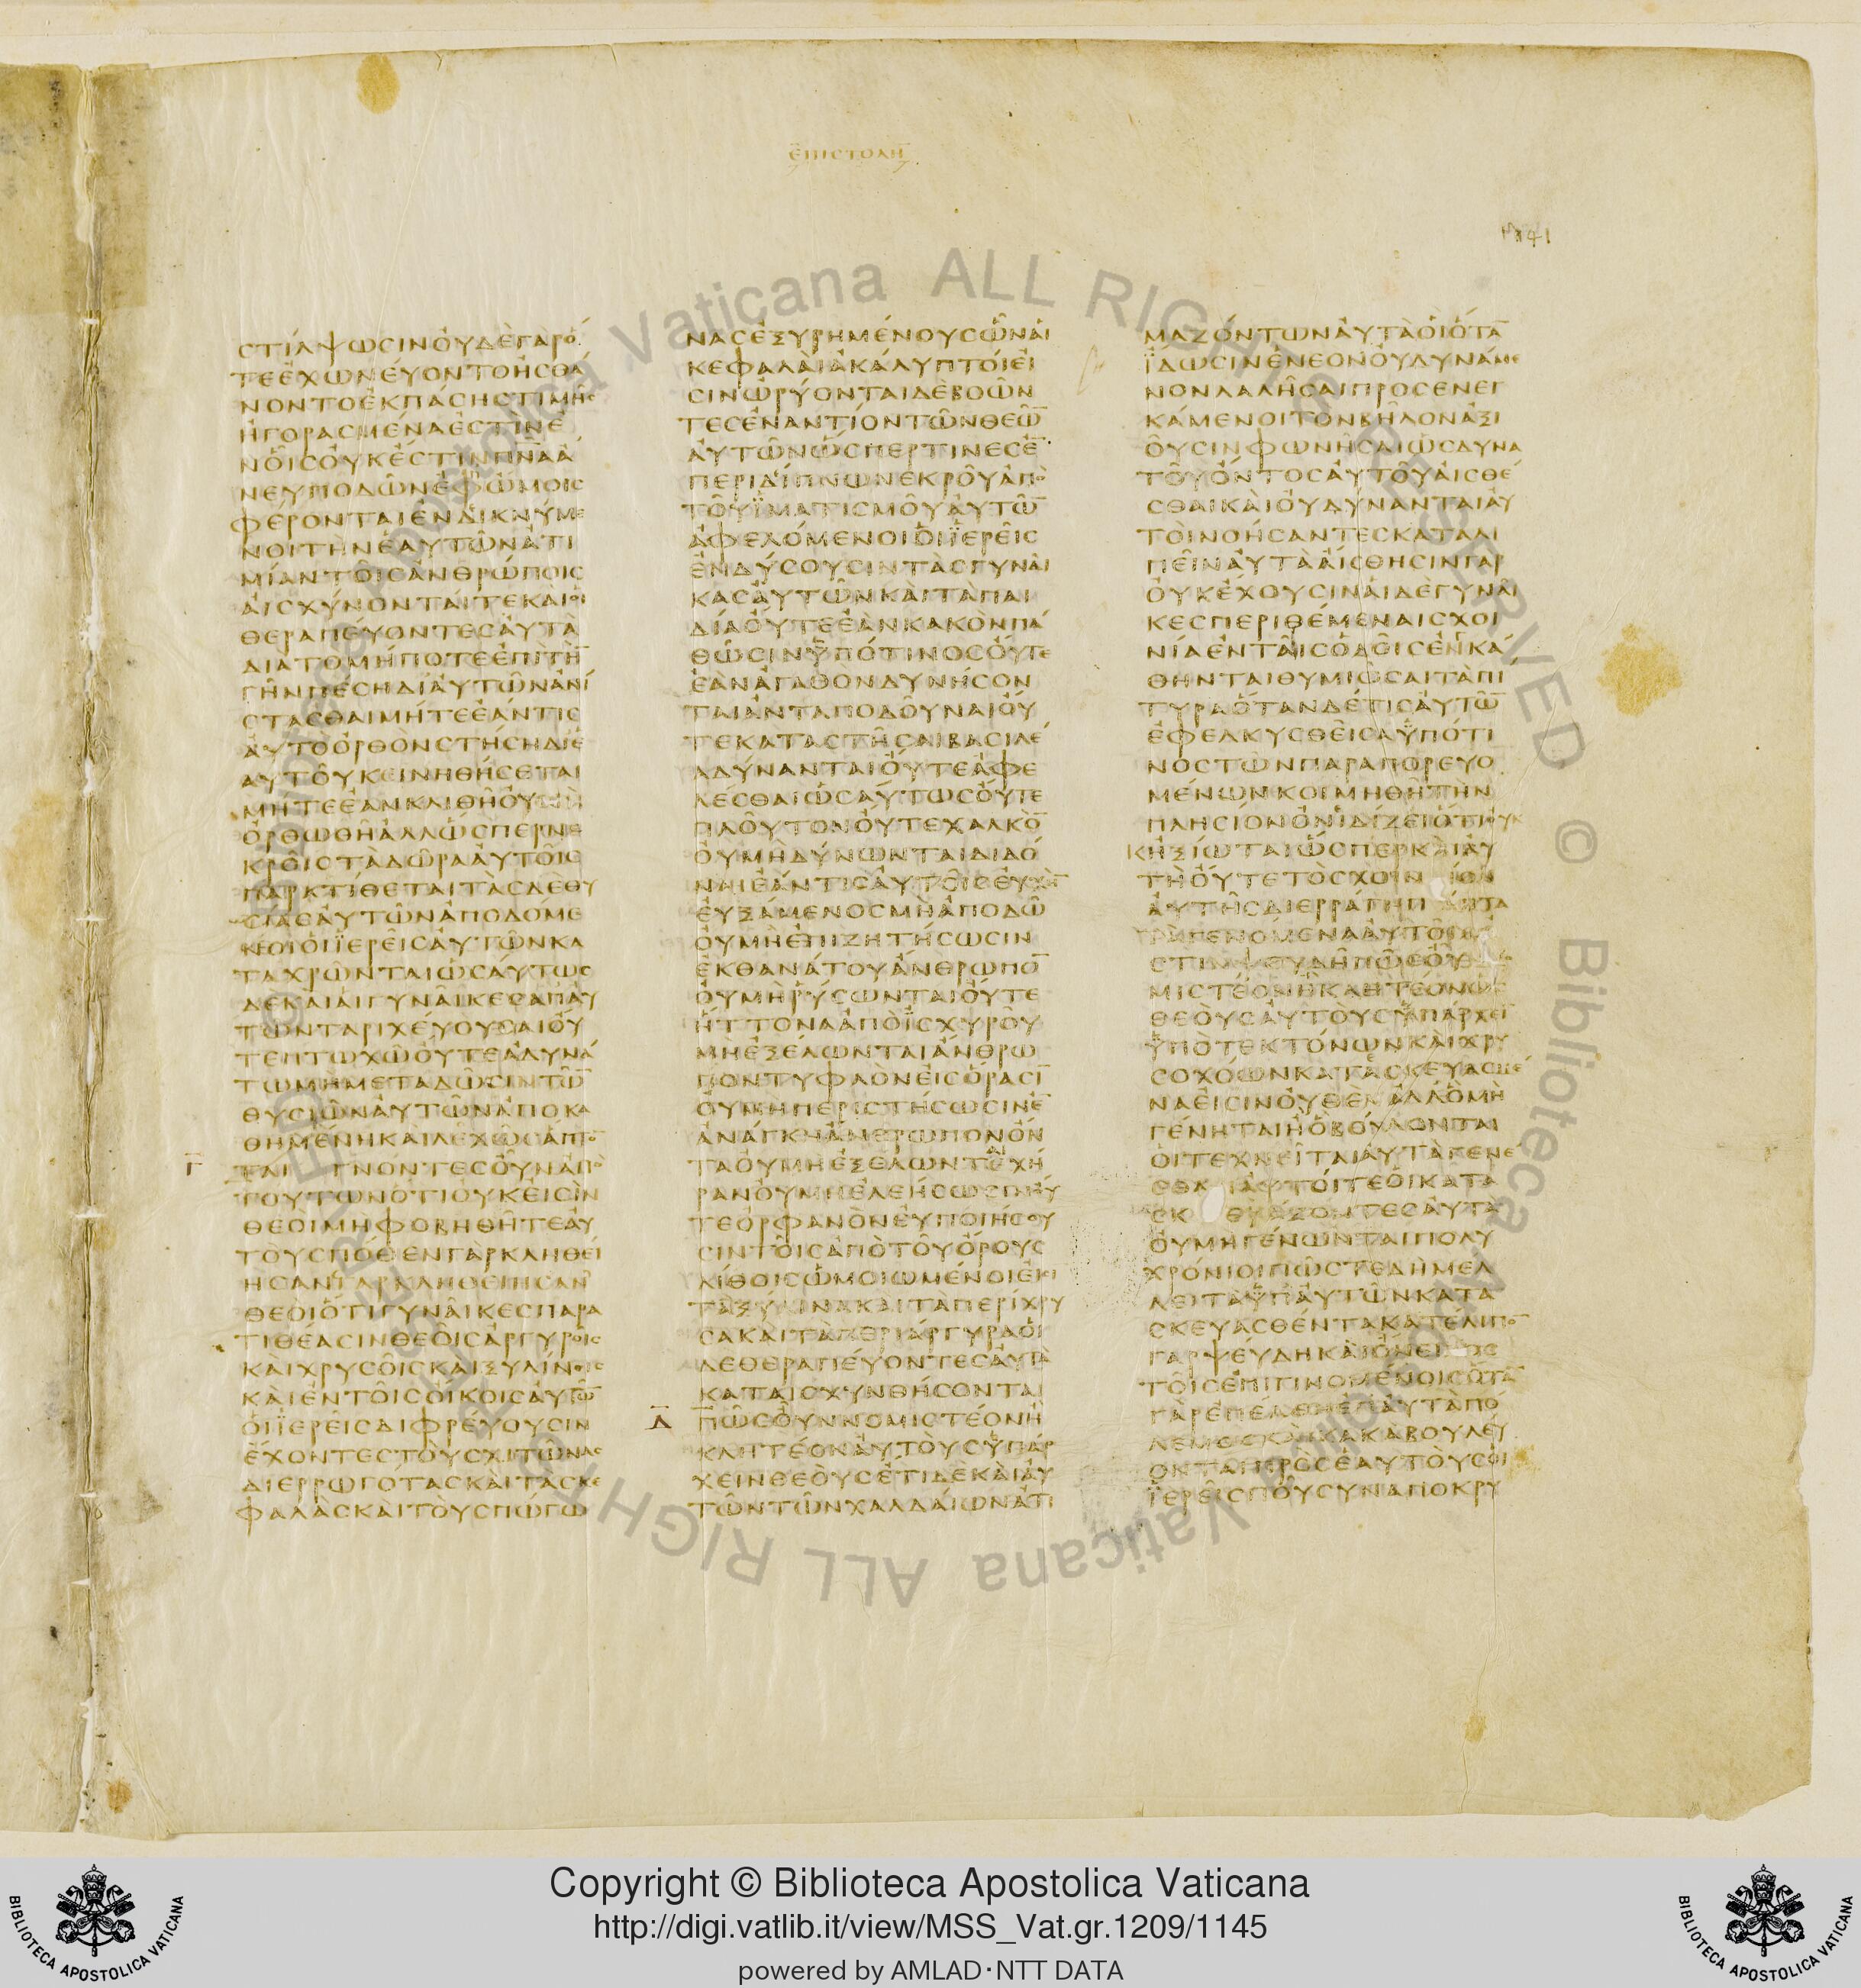 ΕΠΙΣΤΟΛΗ
1141
ϹΤΙΛΨΩϹΙΝΟΥΔΕΓΑΡΟ
ΤΕΕΧΩΝΕΥΟΝΤΟΗϹΘΑ
ΝΟΝΤΟΕΚΠΑϹΗϹΤΙΜΗϹ
ΗΓΟΡΑϹΜΕΝΑΕϹΤΙΝΕ
ΝΟΙϹΟΥΚΕϹΤΙΝΠΝΑΑ
ΝΕΥΠΟΔΩΝΕΦΩΜΟΙϹ
ΦΕΡΟΝΤΑΙΕΝΔΙΚΝΥΜΕ
ΝΟΙΤΗΝΕΑΥΤΩΝΑΤΙ
ΜΙΑΝΤΟΙϹΑΝΘΡΩΠΟΙϹ
ΑΙϹΧΥΝΟΝΤΑΙΤΕΚΑΙΟΙ
ΘΕΡΑΠΕΥΟΝΤΕϹΑΥΤΑ
ΔΙΑΤΟΜΗΠΟΤΕΕΠΙΤΗ̅
ΓΗΝΠΕϹΗΔΙΑΥΤΩΝΑΝΙ
ϹΤΑϹΘΑΙΜΗΤΕΕΑΝΤΙϹ
ΑΥΤΟΟΡΘΟΝϹΤΗϹΗΔΙΕ
ΑΥΤΟΥΚΕΙΝΗΘΗϹΕΤΑΙ
ΜΗΤΕΕΑΝΚΛΙΘΗΟΥΜΗ
ΟΡΘΩΘΗΑΛΛΩϹΠΕΡΝΕ
ΚΡΟΙϹΤΑΔΩΡΑΑΥΤΟΙϹ
ΠΑΡΑΤΙΘΕΤΑΙΤΑϹΔΕΘΥ
ϹΙΑϹΑΥΤΩΝΑΠΟΔΟΜΕ
ΝΟΙΟΙΪΕΡΕΙϹΑΥΤΩΝΚΑ
ΤΑΧΡΩΝΤΑΙΩϹΑΥΤΩϹ
ΔΕΚΑΙΑΙΓΥΝΑΙΚΕϹΑΠΑΥ
ΤΩΝΤΑΡΙΧΕΥΟΥϹΑΙΟΥ
ΤΕΠΤΩΧΩΟΥΤΕΑΔΥΝΑ
ΤΩΜΗΜΕΤΑΔΩϹΙΝΤΩ̅
ΘΥϹΙΩΝΑΥΤΩΝΑΠΟΚΑ
ΘΗΜΕΝΗΚΑΙΛΕΧΩϹΑΠΤΟ̅
ΤΑΙ ΓΝΟΝΤΕϹΟΥΝΑΠΟ
Γ̅
ΤΟΥΤΩΝΟΤΙΟΥΚΕΙϹΙΝ
ΘΕΟΙΜΗΦΟΒΗΘΗΤΕΑΥ
ΤΟΥϹΠΟΘΕΝΓΑΡΚΛΗΘΕΙ
ΗϹΑΝ
ΘΕΟΙΟΤΙΓΥΝΑΙΚΕϹΠΑΡΑ
ΤΙΘΕΑϹΙΝΘΕΟΙϹΑΡΓΥΡΟΙϹ
ΚΑΙΧΡΥϹΟΙϹΚΑΙΞΥΛΙΝΟΙϹ
ΚΑΙΕΝΤΟΙϹΟΙΚΟΙϹΑΥΤΩ̅
ΟΙΪΕΡΕΙϹΔΙΦΡΕΥΟΥϹΙΝ
ΕΧΟΝΤΕϹΤΟΥϹΧΙΤΩΝΑϹ
ΔΙΕΡΡΩΓΟΤΑϹΚΑΙΤΑϹΚΕ
ΦΑΛΑϹΚΑΙΤΟΥϹΠΩΓΩ
ΝΑϹΕΞΥΡΗΜΕΝΟΥϹΩΝΑΙ
ΚΕΦΑΛΑΙΑΚΑΛΥΠΤΟΙΕΙ
ϹΙΝΩΡΥΟΝΤΑΙΔΕΒΟΩΝ
ΤΕϹΕΝΑΝΤΙΟΝΤΩΝΘΕΩ̅
ΑΥΤΩΝΩϹΠΕΡΤΙΝΕϹΕ̅
ΠΕΡΙΔΙΠΝΩΝΕΚΡΟΥΑΠΟ
ΤΟΥΪΜΑΤΙϹΜΟΥΑΥΤΩ̅
ΑΦΕΛΟΜΕΝΟΙΟΙΪΕΡΕΙϹ
ΕΝΔΥϹΟΥϹΙΝΤΑϹΓΥΝΑΙ
ΚΑϹΑΥΤΩΝΚΑΙΤΑΠΑΙ
ΔΙΑΟΥΤΕΕΑΝΚΑΚΟΝΠΑ
ΘΩϹΙΝΫΠΟΤΙΝΟϹΟΥΤΕ
ΕΑΝΑΓΑΘΟΝΔΥΝΗϹΟΝ
ΤΑΙΑΝΤΑΠΟΔΟΥΝΑΙΟΥ
ΤΕΚΑΤΑϹΤΗϹΑΙΒΑϹΙΛΕ
ΑΔΥΝΑΝΤΑΙΟΥΤΕΑΦΕ
ΛΕϹΘΑΙΩϹΑΥΤΩϹΟΥΤΕ
ΠΛΟΥΤΟΝΟΥΤΕΧΑΛΚΟ̅
ΟΥΜΗΔΥΝΩΝΤΑΙΔΙΔΟ
ΝΑΙΕΑΝΤΙϹΑΥΤΟΙϹΕΥΧΗ̅
ΕΥΞΑΜΕΝΟϹΜΗΑΠΟΔΩ
ΟΥΜΗΕΠΙΖΗΤΗϹΩϹΙΝ
ΕΚΘΑΝΑΤΟΥΑΝΘΡΩΠΟ̅
ΟΥΜΗΡΥϹΩΝΤΑΙΟΥΤΕ
ΗΤΤΟΝΑΑΠΟΪϹΧΥΡΟΥ
ΜΗΕΞΕΛΩΝΤΑΙΑΝΘΡΩ
ΠΟΝΤΥΦΛΟΝΕΙϹΟΡΑϹΙ̅
ΟΥΜΗΠΕΡΙϹΤΗϹΩϹΙΝΕ̅
ΑΝΑΓΚΗΑΝΘΡΩΠΟΝΟΝ
ΤΑΟΥΜΗΕΞΕΛΩΝΤΑΙΧΗ
ΡΑΝΟΥΜΗΕΛΕΗϹΩϹΙΝΟΥ
ΤΕΟΡΦΑΝΟΝΕΥΠΟΙΗϹΟΥ
ϹΙΝΤΟΙϹΑΠΟΤΟΥΟΡΟΥϹ
ΛΙΘΟΙϹΩΜΟΙΩΜΕΝΟΙΕΙϹΙ
ΤΑΞΥΛΙΝΑΚΑΙΤΑΠΕΡΙΧΡΥ
ϹΑΚΑΙΤΑΠΕΡΙΑΡΓΥΡΑΟΙ
ΔΕΘΕΡΑΠΕΥΟΝΤΕϹΑΥΤΑ
ΚΑΤΑΙϹΧΥΝΘΗϹΟΝΤΑΙ
Δ̅
ΠΩϹΟΥΝΝΟΜΙϹΤΕΟΝΗ
ΚΛΗΤΕΟΝΑΥΤΟΥϹΫΠΑΡ
ΧΕΙΝΘΕΟΥϹΕΤΙΔΕΚΑΙΑΥ
ΤΩΝΤΩΝΧΑΛΔΑΙΩΝΑΤΙ
ΜΑΖΟΝΤΩΝΑΥΤΑΟΙΟΤΑ̅
ΪΔΩϹΙΝΕΝΕΟΝΟΥΔΥΝΑΜΕ
ΝΟΝΛΑΛΗϹΑΙΠΡΟϹΕΝΕΓ
ΚΑΜΕΝΟΙΤΟΝΒΗΛΟΝΑΞΙ
ΟΥϹΙΝΦΩΝΗϹΑΙΩϹΔΥΝΑ
ΤΟΥΟΝΤΟϹΑΥΤΟΥΑΙϹΘΕ
ϹΘΑΙΚΑΙΟΥΔΥΝΑΝΤΑΙΑΥ
ΤΟΙΝΟΗϹΑΝΤΕϹΚΑΤΑΛΙ
ΠΕΙΝΑΥΤΑΑΙϹΘΗϹΙΝΓΑΡ
ΟΥΚΕΧΟΥϹΙΝΑΙΔΕΓΥΝΑΙ
ΚΕϹΠΕΡΙΘΕΜΕΝΑΙϹΧΟΙ
ΝΙΑΕΝΤΑΙϹΟΔΟΙϹΕΝΚΑ
ΘΗΝΤΑΙΘΥΜΙΩϹΑΙΤΑΠΙ
ΤΥΡΑΟΤΑΝΔΕΤΙϹΑΥΤΩ̅
ΕΦΕΛΚΥϹΘΕΙϹΑΫΠΟΤΙ
ΝΟϹΤΩΝΠΑΡΑΠΟΡΕΥΟ
ΜΕΝΩΝΚΟΙΜΗΘΗΤΗΝ
ΠΛΗϹΙΟΝΟΝΙΔΙΖΕΙΟΤΙΟΥΚ
ΗΞΙΩΤΑΙΩϹΠΕΡΚΑΙΑΥ
ΤΗΟΥΤΕΤΟϹΧΟΙΝΙΟΝ
ΑΥΤΗϹΔΙΕΡΡΑΓΗΠΑΝΤΑ
ΤΑΓΕΝΟΜΕΝΑΑΥΤΟΙϹΕ
ϹΤΙΝΨΕΥΔΗΠΩϹΟΥΝΝΟ
ΜΙϹΤΕΟΝΗΚΛΗΤΕΟΝΩϹ
ΘΕΟΥϹΑΥΤΟΥϹΫΠΑΡΧΕΙ̅
ΫΠΟΤΕΚΤΟΝΩΝΚΑΙΧΡΥ
ϹΟΧΟΩΝΚΑΤΑϹΚΕΥΑϹΜΕ
ΝΑΕΙϹΙΝΟΥΘΕΝΑΛΛΟΜΗ
ΓΕΝΗΤΑΙΗΟΒΟΥΛΟΝΤΑΙ
ΟΙΤΕΧΝΕΙΤΑΙΑΥΤΑΓΕΝΕ
ϹΘΑΙΑΥΤΟΙΤΕΟΙΚΑΤΑ
ϹΚΕΥΑΖΟΝΤΕϹΑΥΤΑ
ΟΥΜΗΓΕΝΩΝΤΑΙΠΟΛΥ
ΧΡΟΝΙΟΙΠΩϹΤΕΔΗΜΕΛ
ΛΕΙΤΑΫΠΑΥΤΩΝΚΑΤΑ
ϹΚΕΥΑϹΘΕΝΤΑΚΑΤΕΛΙΠΟ̅
ΓΑΡΨΕΥΔΗΚΑΙΟΝΕΙΔΟϹ
ΤΟΙϹΕΠΙΓΙΝΟΜΕΝΟΙϹΟΤΑ̅
ΓΑΡΕΠΕΛΘΗΕΠΑΥΤΑΠΟ
ΛΕΜΟϹΚΑΙΚΑΚΑΒΟΥΛΕΥ
ΟΝΤΑΙΠΡΟϹΕΑΥΤΟΥϹΟΙ
ΪΕΡΕΙϹΠΟΥϹΥΝΑΠΟΚΡΥ
Copyright © Biblioteca Apostolica Vaticana
http://digi.vatlib.it/view/MSS_Vat.gr.1209/1145
powered by AMLAD·NTT DATA
BIBLIOTECA APOSTOLICA VATICANA
BIBLIOTECA APOSTOLICA VATICANA